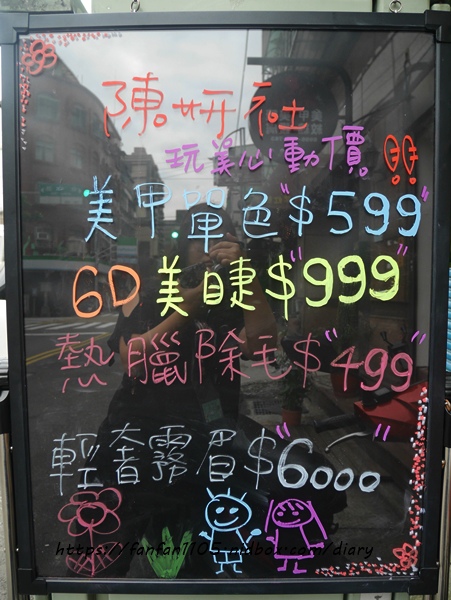 陳妍社
玩美心動價!!
美甲單色"$599"
6D美睫$"999"
熱臘除毛$"499"
輕奢霧眉$"6000"
https://fanfan1105.nidbox.com/diary